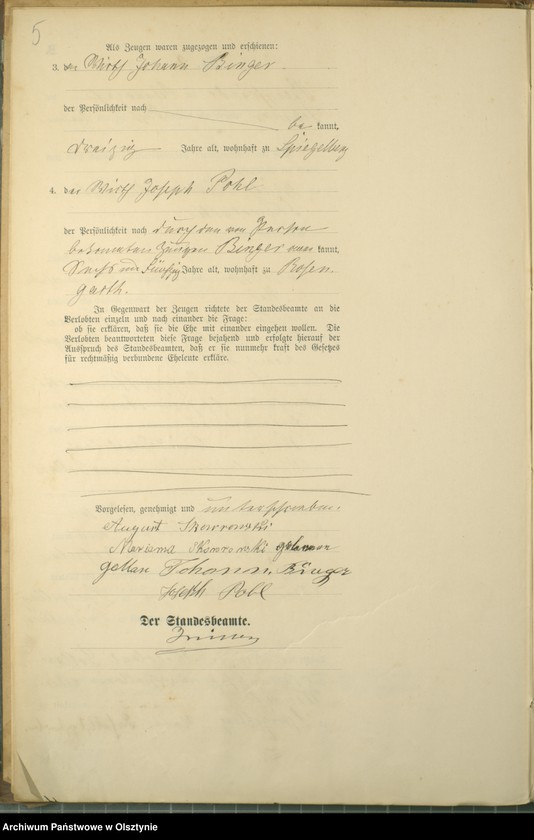 5
Als Zeugen waren zugezogen und erschienen:
3. der Wirth Johann Binger
der Persönlichkeit nach
be kannt,
dreißig Jahre alt, wohnhaft zu Spiegelberg
4. der Wirth Joseph Pohl
der Persönlichkeit nach durch den von Person
bekannten Zeugen Binger aner kannt,
Sechs und fünfzig Jahre alt, wohnhaft zu Rosen-
garth.
In Gegenwart der Zeugen richtete der Standesbeamte an die
Verlobten einzeln und nach einander die Frage:
ob sie erklären, daß sie die Ehe mit einander eingehen wollen. Die
Verlobten beantworteten diese Frage bejahend und erfolgte hierauf der
Ausspruch des Standesbeamten, daß er sie nunmehr kraft des Gesetzes
für rechtmäßig verbundene Eheleute erkläre.
Vorgelesen, genehmigt und unterschrieben.
August Skowronski
Marianna Skowronski geborene
Johann Binger
Joseph Pohl
Der Standesbeamte.
Archiwum Państwowe w Olsztynie